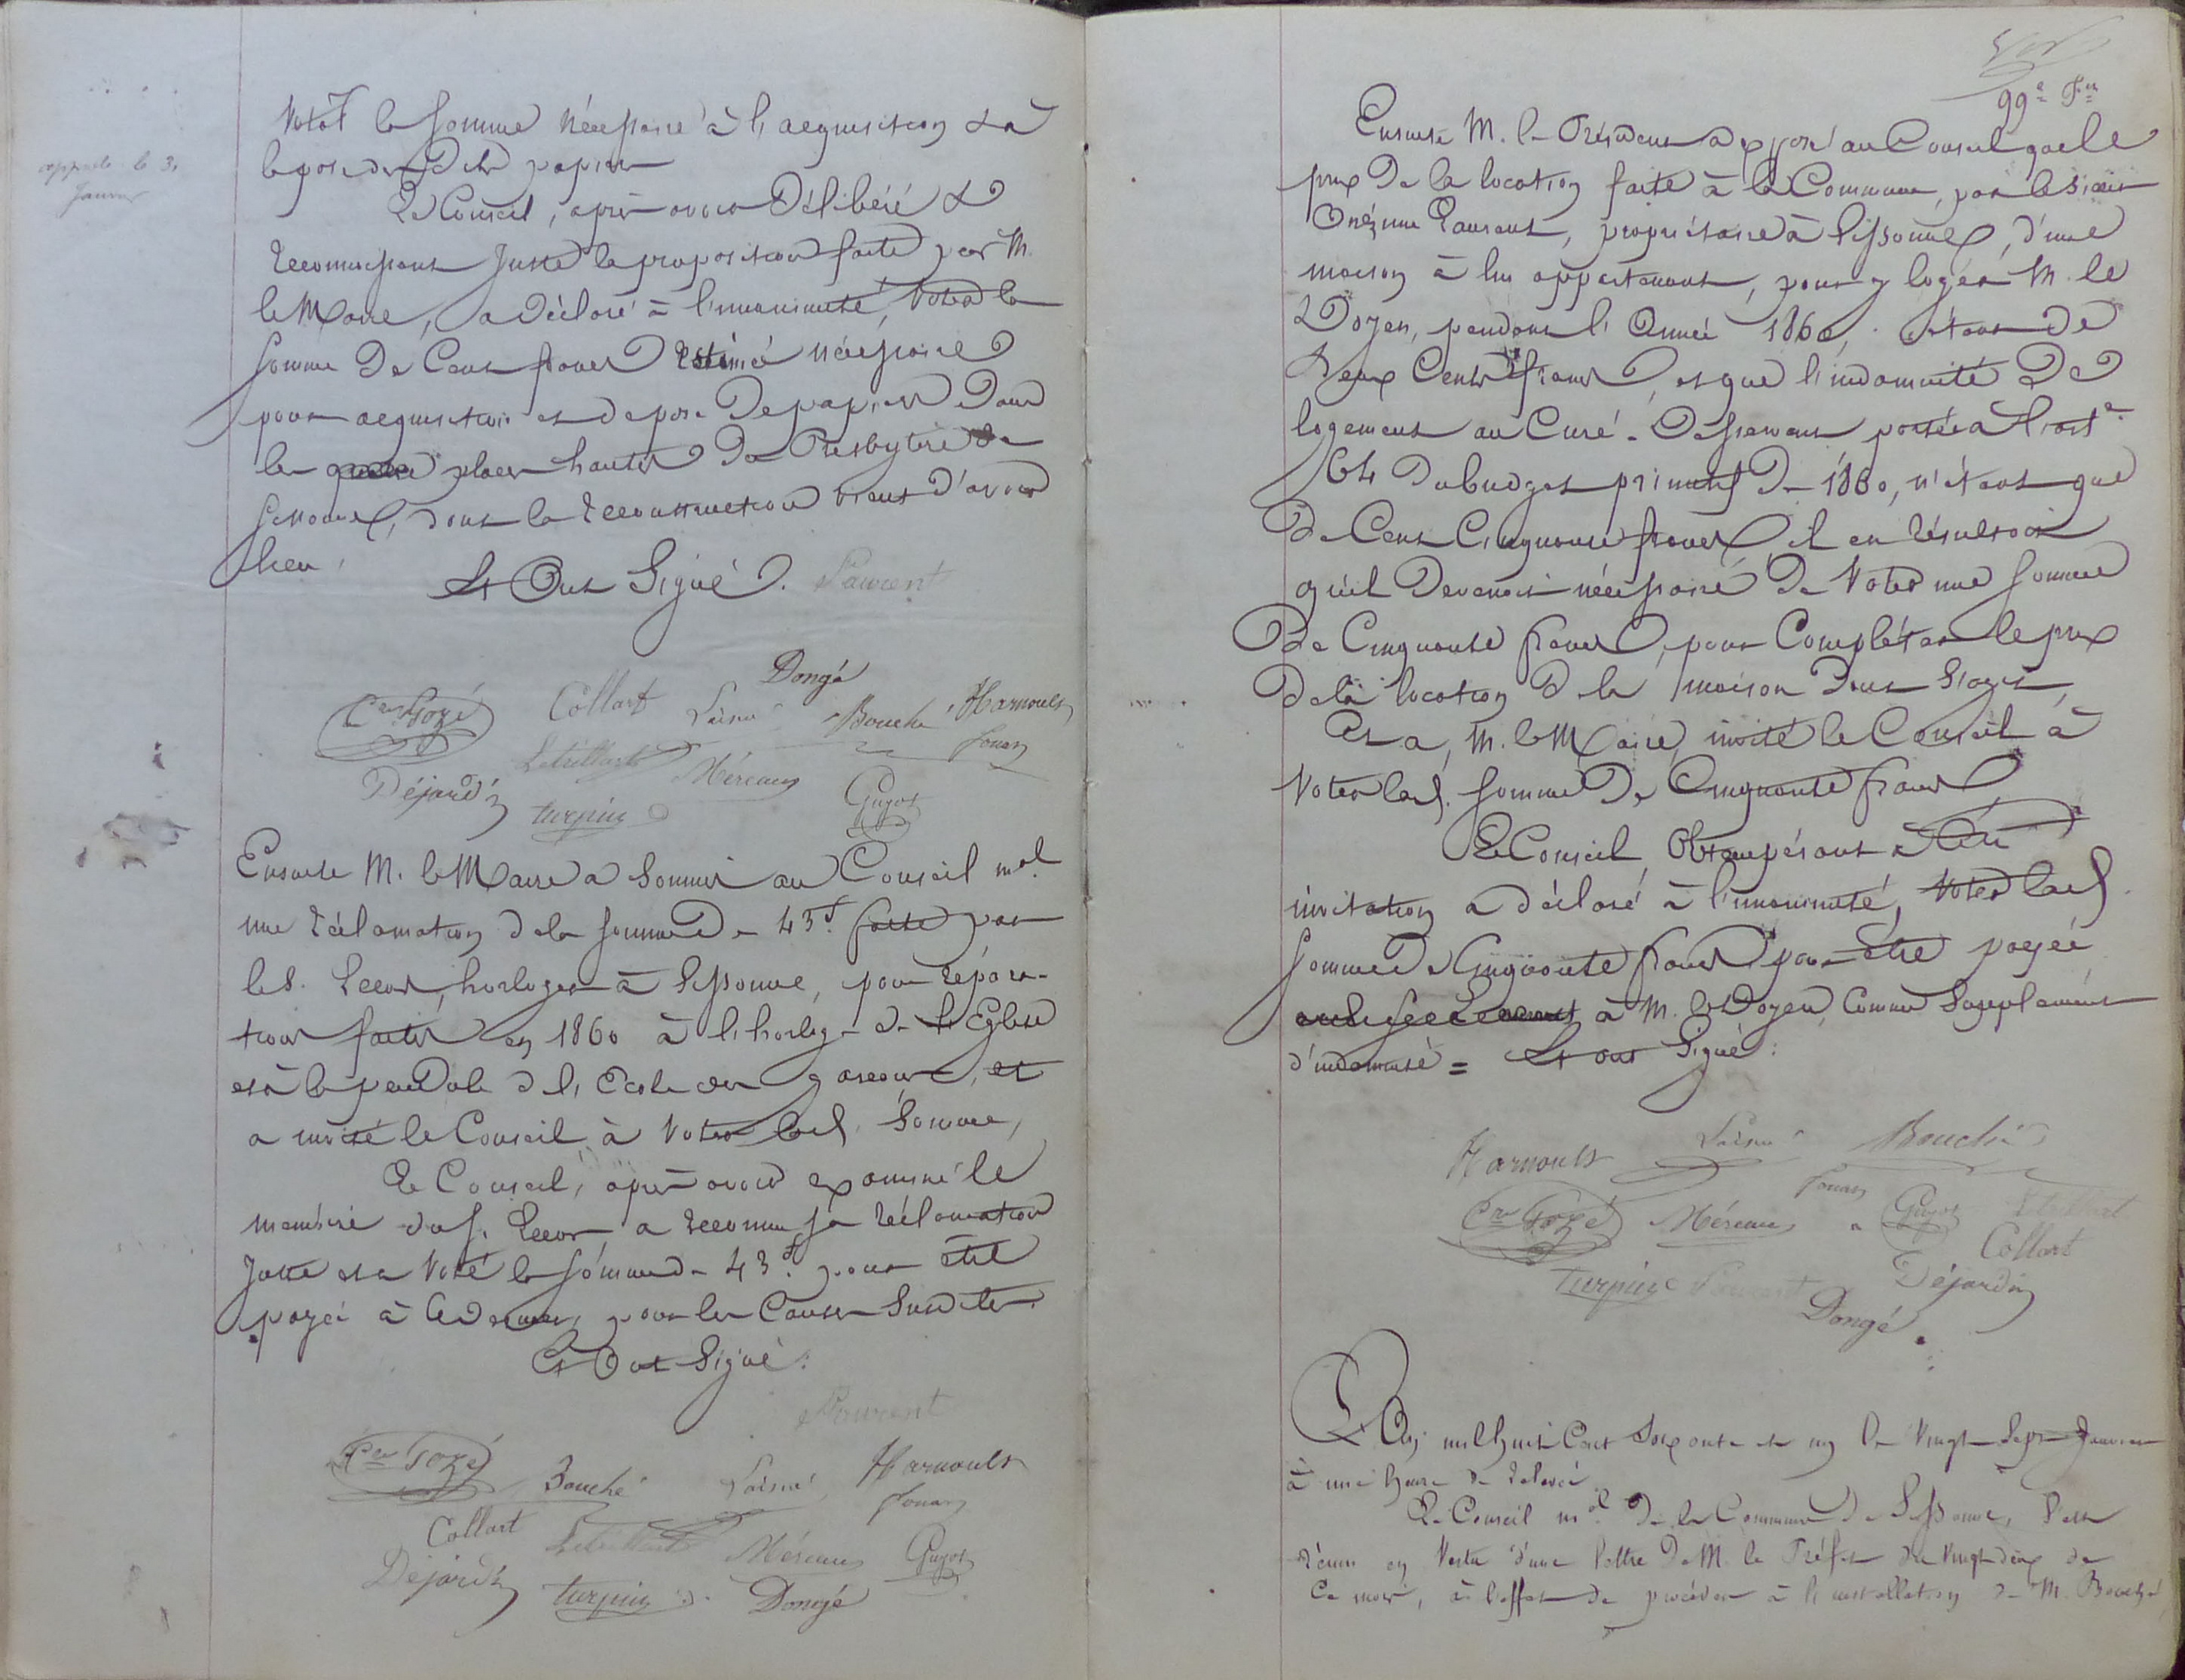 appr. le 31
Janvier
Votât la Somme nécessaire à l'acquisition & à
la pose desd. papiers
Le Conseil, après avoir Délibéré &
Reconnaissant Juste la proposition faite par M.
le Maire, a Déclaré à l'unanimité, Voter la
Somme De Cent francs Estimée nécessaire
pour acquisition et de pose De papiers Dans
les places hautes Du Presbytère de
Sissonne, dont la Reconstruction vient d'avoir
lieu,
Et Ont Signé. Laurent
Dongé
Cer Gozé Collart Lainé Bouché Harnoult
Létrillart Méreau fouan
Déjardin turpin Guyot
Ensuite M. le Maire a Soumis au Conseil mal
une réclamation de la Somme de 43f. faite par
le S. Lecor, horloger à Sissonne, pour répara-
tions faites en 1860 à l'horloge de l'Eglise
et à la pendule de l'Ecole des garçons, et
a invité le Conseil à Voter lad. Somme,
Le Conseil, après avoir examiné le
mémoire du s. Lecor, a reconnu sa réclamation
Juste et a Voté la Somme de 43f. pour être
payée à ce dernier, pour les Causes Susdites.
Et Ont Signé:
Laurent
Cer Gozé Bouché Lainé Harnoult
fouan
Collart Létrillart Méreau Guyot
Déjardin turpin Dongé
99e Fet
Ensuite M. le Président a exposé au Conseil que le
prix De la location faite à la Commune, par le Sieur
Onézime Laurent, propriétaire à Sissonne, d'une
maison à lui appartenant, pour y loger M. le
Doyen, pendant l'Année 1860, étant de
Deux Cents francs, et que l'indemnité De
logement au Curé-Desservant portée à l'art.
64 Du budget primitif De 1860, n'étant que
De Cent Cinquante francs, il en résultait
qu'il Devenait nécessaire De Voter une Somme
De Cinquante francs, pour Compléter le prix
De la location de la maison Dont S'agit,
Et a, M. le Maire, invité le Conseil à
Voter lad. Somme De Cinquante francs
Le Conseil, Obtempérant à cette
invitation a déclaré à l'unanimité, Voter lad.
Somme De Cinquante francs pour être payée
à M. le Doyen, Comme Supplément
d'indemnité = Et ont Signé:
Harnoult Lainé Bouché
fouan
Cer Gozé Méreau Guyot Létrillart
Collart
turpin Laurent Déjardin
Dongé
L'An mil huit Cent Soixante et un le Vingt Sept Janvier
à une heure de relevée
Le Conseil mal. De la Commune De Sissonne, S'est
réuni en Vertu d'une lettre De M. le Préfet du Vingt deux de
Ce mois, à l'effet De procéder à l'installation De M. Bouché